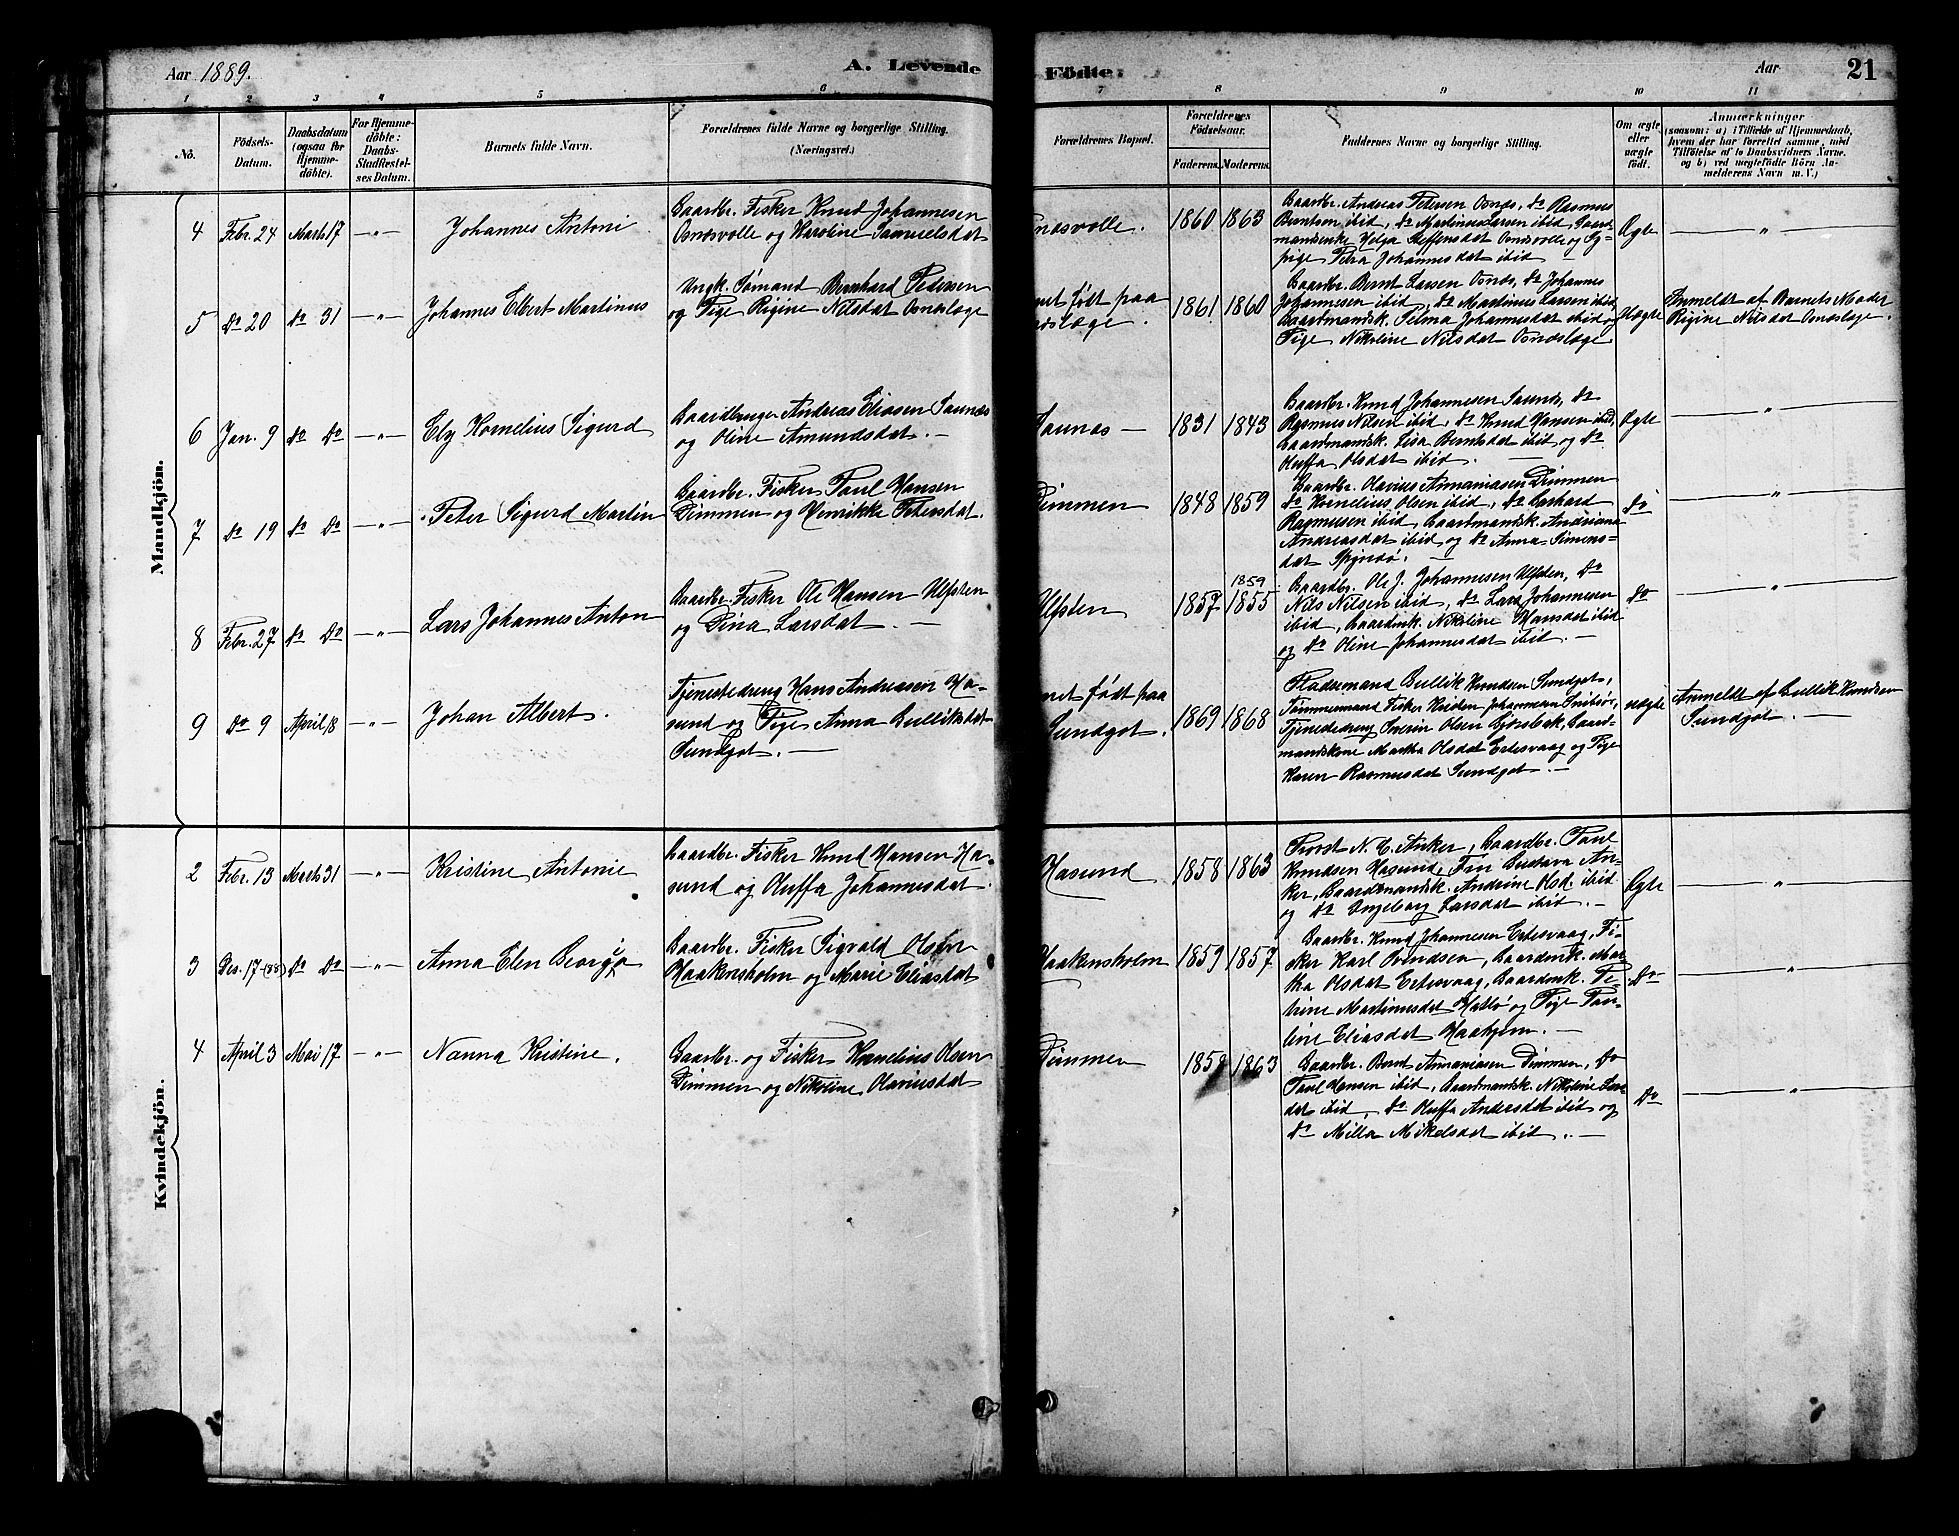 Aar 1889.
A. Levende
Födte.
Aar
21
1 2 3 4 5 6 7 8 9 10 11
No.
Födsels-
Datum.
Daabsdatum
(ogsaa for
Hjemme-
döbte).
For Hjemme-
döbte:
Daabs-
Stadfæstel-
ses Datum.
Barnets fulde Navn.
Forældrenes fulde Navne og borgerlige Stilling.
(Næringsvei.)
Forældrenes Bopæl.
Forældrenes
Födselsaar.
Faderens. Moderens.
Faddernes Navne og borgerlige Stilling.
Om ægte
eller
uægte
födt.
Anmærkninger
(saasom: a) i Tilfælde af Hjemmedaab,
hvem der har forrettet samme, med
Tilföielse af to Daabsvidners Navne,
og b) ved uægtefödte Börn An-
melderens Navn m. V.)
Mandkjön.
4 Febr. 24 Marts 17 -"- Johannes Antoni
Gaardbr. Fisker Knud Johannesen
Osnæsvolle og Karoline Samuelsdat
næsvolle. 1860 1863
Gaardbr. Andreas Petersen Osnæs, Do Rasmus
Berntsen ibid, Do Martinus Larsen ibid, Gaard-
mandsenke Helga Steffensdat Osnæsvolle og
pige Petra Johannesdat ibid
Ægte — " —
5 Do 20 Do 31 -"- Johannes Elbert Martinus
Ungk. Sømand Bernhard Pedersen
og Pige Rigine Nilsdat Osnæslæge
net født paa
næslæge. 1861 1860
Gaardbr. Bernt Larsen Osnæs, Do Johannes
Johannesen ibid, Do Martinus Larsen ibid,
Gaardmandsk. Selma Johannesdat ibid og
Pige Nikoline Nilsdat Osnæslæge
Uægte
Anmeldt af Barnets Moder
Rigine Nilsdat Osnæslæge.
6 Jan. 9 Do Do -"- Ely Kornelius Sigurd
Gaardbruger Andreas Eliasen Saunæs
og Oline Amundsdat. —
Saunæs — 1831 1843
Gaardbr. Knud Johannesen Saunæs, Do
Rasmus Nilsen ibid, Do Knud Hansen ibid,
Gaardmandsk. Lisa Berntsdat ibid og Do
Oluffa Olsdat ibid. —
Ægte — " —
7 Do 19 Do Do -"- Peter Sigurd Martin
Gaardbr. Fisker Paul Hansen
Dimmen og Henrikke Petersdat.
Dimmen 1848 1859
Gaardbr. Olavius Annaniasen Dimmen
Do Kornelius Olsen ibid, Do
Rasmusen ibid, Gaardmandsk. Andriana
Andreasdat ibid og Do Anna Simens-
dat
Do — " —
8 Febr. 27 Do Do -"- Lars Johannes Anton
Gaardbr. Fisker Ole Hansen Ulfsten
og Dina Larsdat. —
Ulfsten 1857 1859 1855
Gaardbr. Ole J. Johannesen Ulfsten, Do
Nils Nilsen ibid, Do Lars Johannesen
ibid, Gaardmk. Nikoline Hansdat ibid
og Do Oline Johannesdat ibid. —
Do — " —
9 Do 9 April 18 -"- Johan Albert.
Tjenestedreng Hans Andreasen Ha-
sund og Pige Anna Gulliksdat
Sundgot. —
net født paa
Sundgot. 1869 1868
Pladsemand Gullik Knudsen Sundgot,
Tømmermand Fisker Kristen Johannsen
Tjenestedreng Severin Olsen Gjørsbak, Gaard-
mandskone Martha Olsdat Ertesvaag og Pige
Karen Rasmusdat Sundgot. —
uægte
Anmeldt af Gullik Knudsen
Sundgot. —
Kvindekjön.
2 Febr. 13 Marts 31 -"- Kristine Antonie
Gaardbr. Fisker Knud Hansen Ha-
sund og Oluffa Johannesdat.
Hasund 1858 1863
Provst N. C. Anker, Gaardbr. Paul
Knudsen Hasund, Fru Gustava An-
ker, Gaardmandsk. Andrine Olsd. ibid
og Do Ingeborg Larsdat ibid. —
Ægte — " —
3 Des. 17 (88) Do Do -"- Anna Elen Georga
Gaardbr. Fisker Sigvald Olsen
Haakensholm og Marie Eliasdat
Haakensholm 1859 1857
Gaardbr. Knud Johannesen Ertesvaag, Fi-
sker Karl Svendsen, Gaardmk. Mar-
tha Olsdat Ertesvaag, Gaardmsk. Pe-
trine Martinusdat Hatlø og Pige Pau-
line Eliasdat Haakjem. —
Do — " —
4 April 3 Mai 17 -"- Nanna Kristine.
Gaardbr. og Fisker Kornelius Olsen
Dimmen og Nikoline Olaviusdat
Dimmen 1858 1863
Gaardbr. Bernt Annaniasen Dimmen, Do
Paul Hansen ibid, Gaardmandsk. Nikoline
dat ibid, Do Oluffa Andersdat ibid og
Do Milla Mikelsdat ibid. —
Do — " —